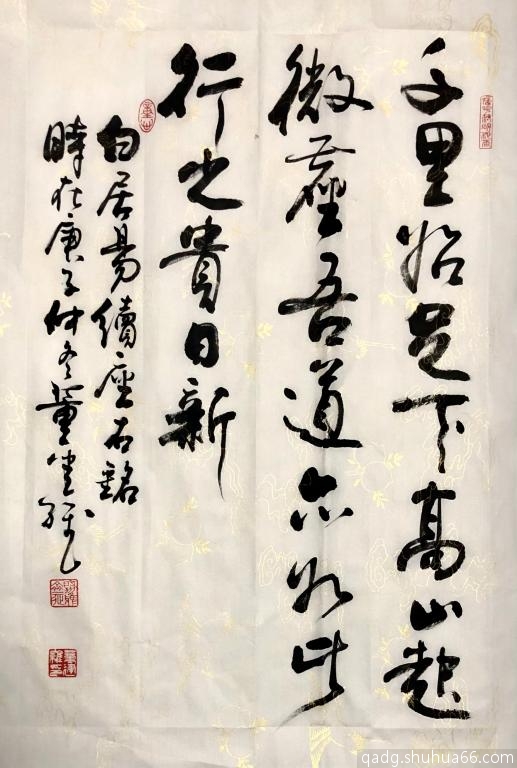 千里始足下高山起
微尘吾道亦如此
行之贵日新
白居易續座右銘
時在庚子仲冬董
qadg.shuhua66.com